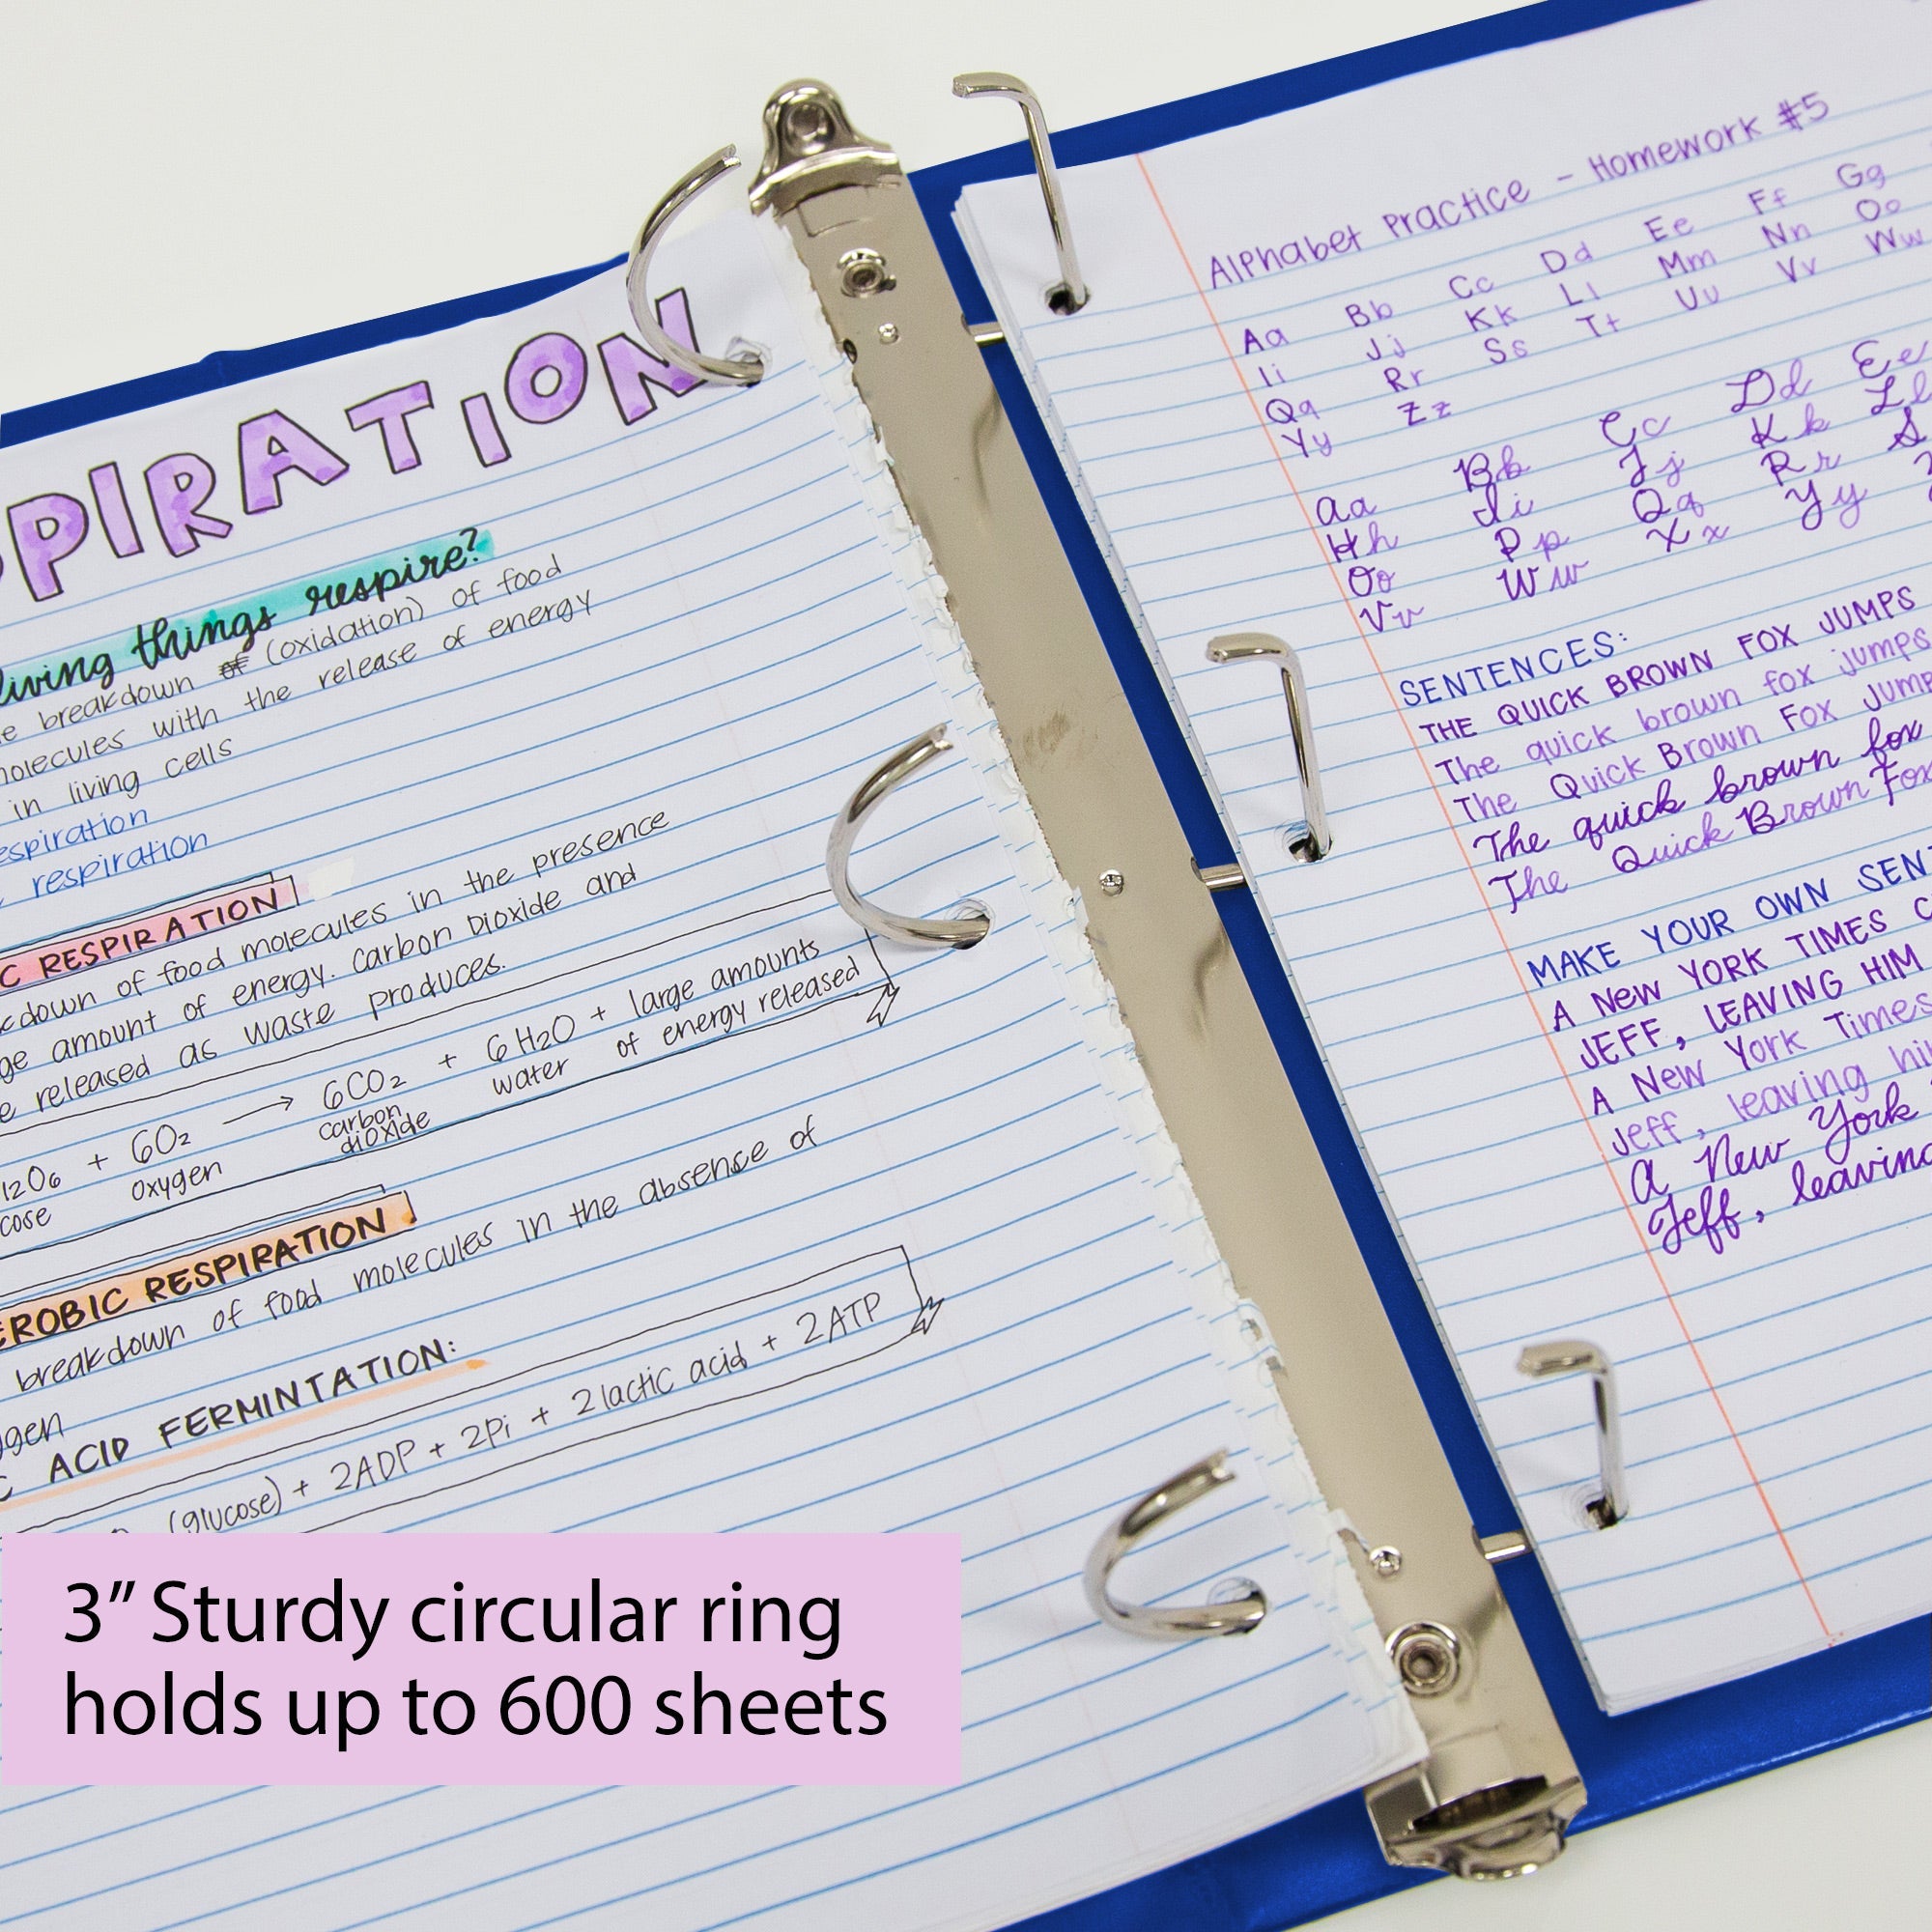 PIRATION
living things respire?
breakdown of (oxidation) of food
molecules with the release of energy
in living cells
espiration
respiration
C RESPIRATION
kdown of food molecules in the presence
ge amount of energy. Carbon Dioxide and
e released as waste produces.
12O6 + 6O2 → 6CO2 + 6H2O + large amounts
cose oxygen carbon dioxide water of energy released
EROBIC RESPIRATION
breakdown of food molecules in the absence of
ygen
C ACID FERMINTATION:
(glucose) + 2ADP + 2Pi + 2 lactic acid + 2ATP
3” Sturdy circular ring
holds up to 600 sheets
Alphabet Practice - Homework #5
Aa Bb Cc Dd Ee Ff Gg
Ii Jj Kk Ll Mm Nn Oo
Qq Rr Ss Tt Uu Vv Ww
Yy Zz
Aa Bb Cc Dd Ee
Hh Ii Jj Kk Ll
Oo Pp Qq Rr S
Vv Ww Xx Yy
SENTENCES:
THE QUICK BROWN FOX JUMPS
The quick brown fox jumps
The Quick Brown Fox Jump
The quick brown fox
The Quick Brown Fox
MAKE YOUR OWN SENT
A NEW YORK TIMES C
JEFF, LEAVING HIM
A New York Times
Jeff, leaving hi
A New York
Jeff, leaving